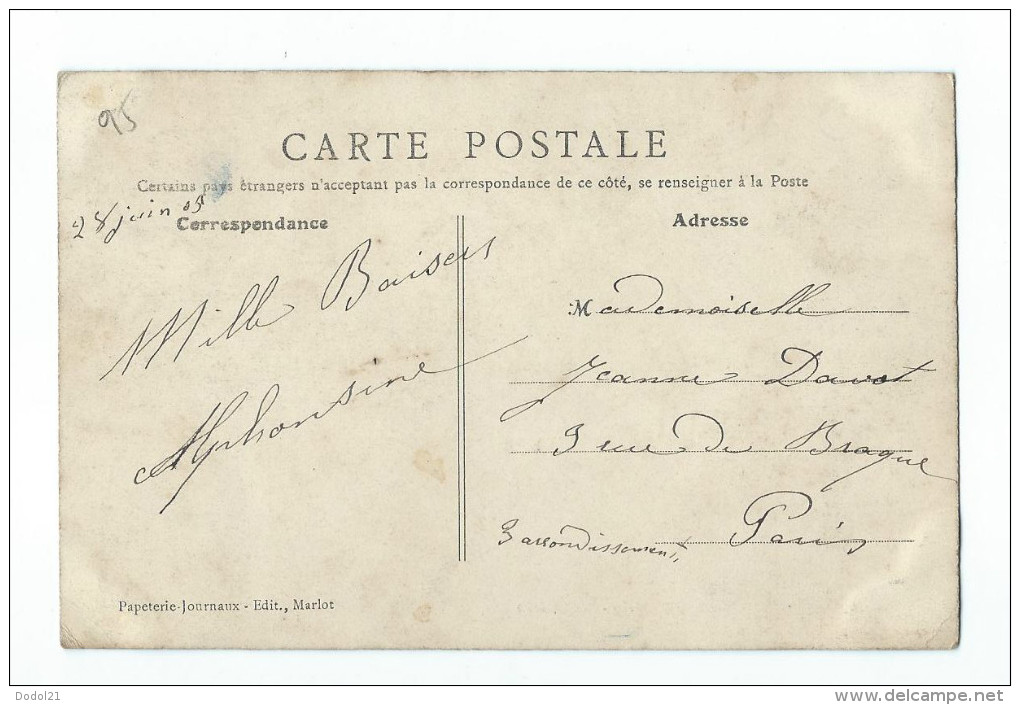 95
CARTE POSTALE
Certains pays étrangers n'acceptant pas la correspondance de ce côté, se renseigner à la Poste
28 juin 05
Correspondance
Mille Baisers
Alphonsine
Adresse
Mademoiselle
Jeanne Davot
3 rue de Braque
Paris
3 arrondissement,
Papeterie-Journaux - Edit., Marlot
Dodol21
www.delcampe.net